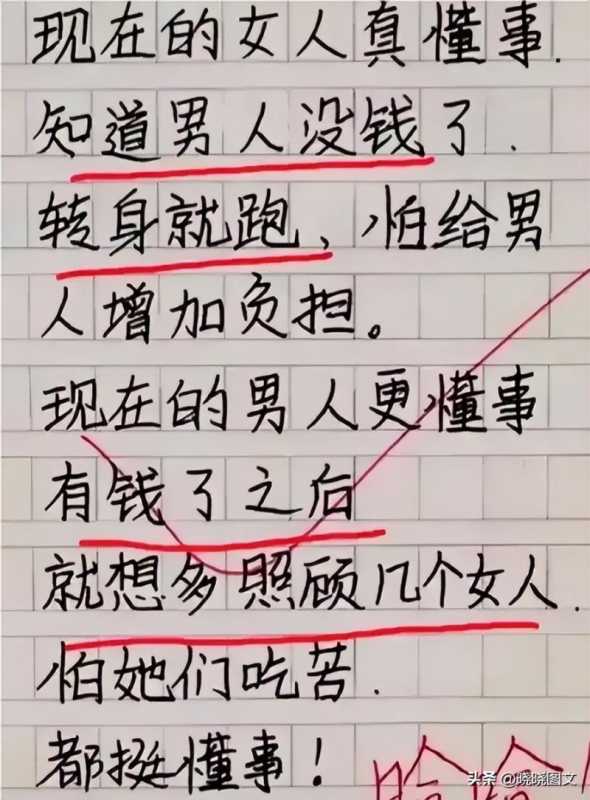 现在的女人真懂事.
知道男人没钱了.
转身就跑，怕给男
人增加负担。
现在的男人更懂事
有钱了之后
就想多照顾几个女人.
怕她们吃苦.
都挺懂事！
哈哈
头条 @晓晓图文